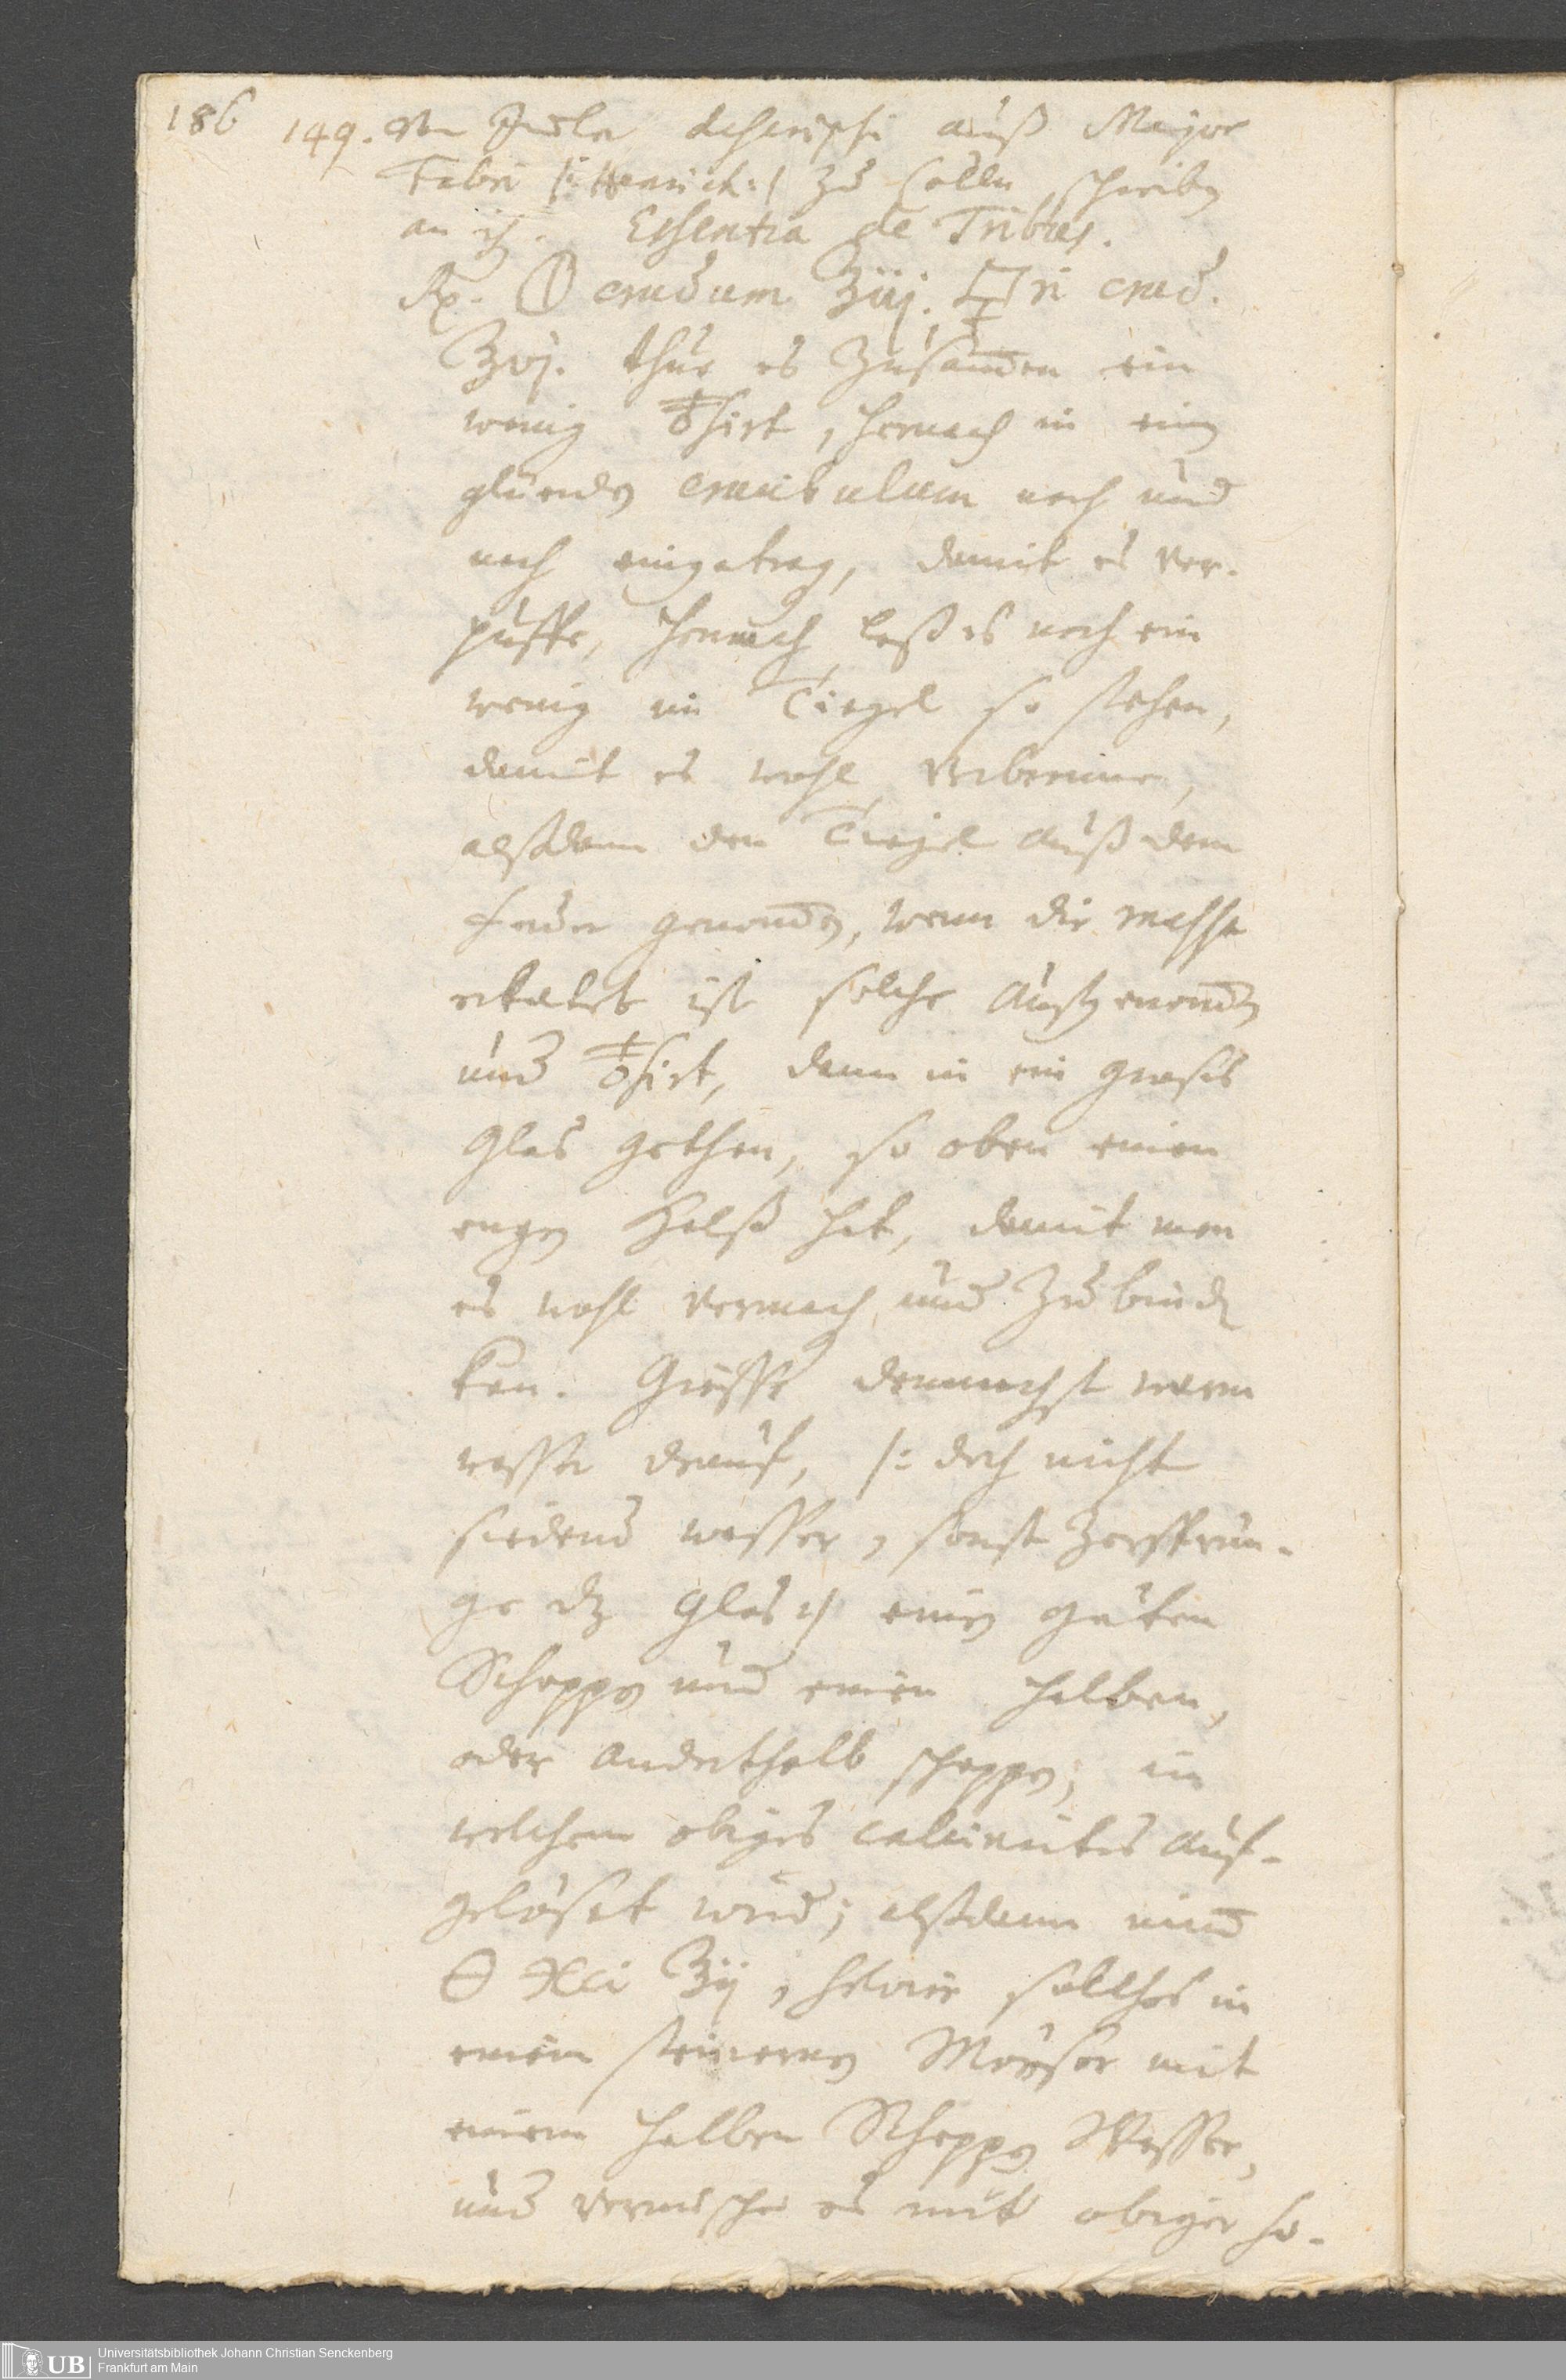 186
149. descripsi auß Major
Fabri /: Henrich :/ zu schreiben
an Essentia de Tribus.
Rp. 🜕 crudum ℥iij. 🜿ri crud.
℥vj. thue es zusam̅en ein
wenig 🜃sirt, hernach in ein
glüenden crucibulum nach und
nach eingetragen, damit es ver-
puffe, hernach laß es noch ein
wenig im Tiegel so stehen,
damit es wohl verbrenne,
alßdann den Tiegel auß dem
feuer genom̅en, wenn die massa
erkaltet ist solche außgenom̅en
und 🜃sirt, dann in ein großes
Glas gethan, so oben einen
engen Halß hat, damit man
es wohl vermachen und zubinden
kan. Giesse demnechst warm
wasser drauf, /: doch nicht
siedend wasser, sonst zersprün-
ge dz Glas :/ einen guten
Schoppen und einen halben,
oder anderthalb schoppen; in
welchem obiges calcinirtes auf-
gelöset wird; alßdann nim̅
🜔 🜹ci ℥ij, solches in
einem steinernen Mörser mit
einem halben Schoppen Wasser,
und vermische es mit obiger so-
Universitätsbibliothek Johann Christian Senckenberg
Frankfurt am Main
UB